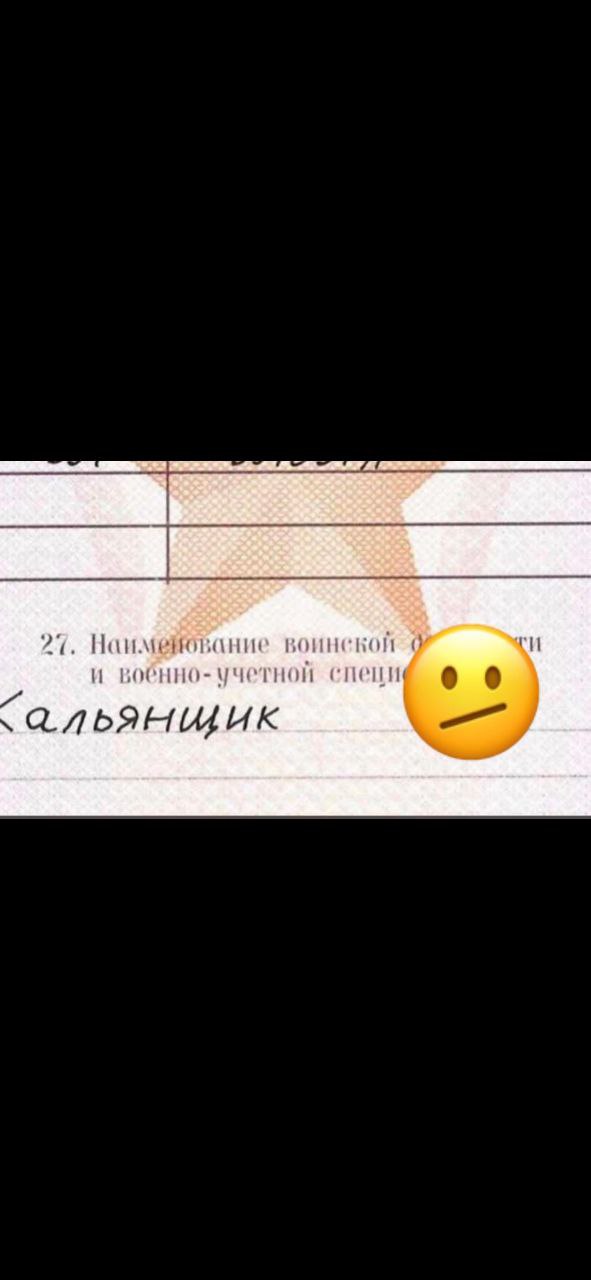 27. Наименование воинской
и военно-учетной
Кальянщик